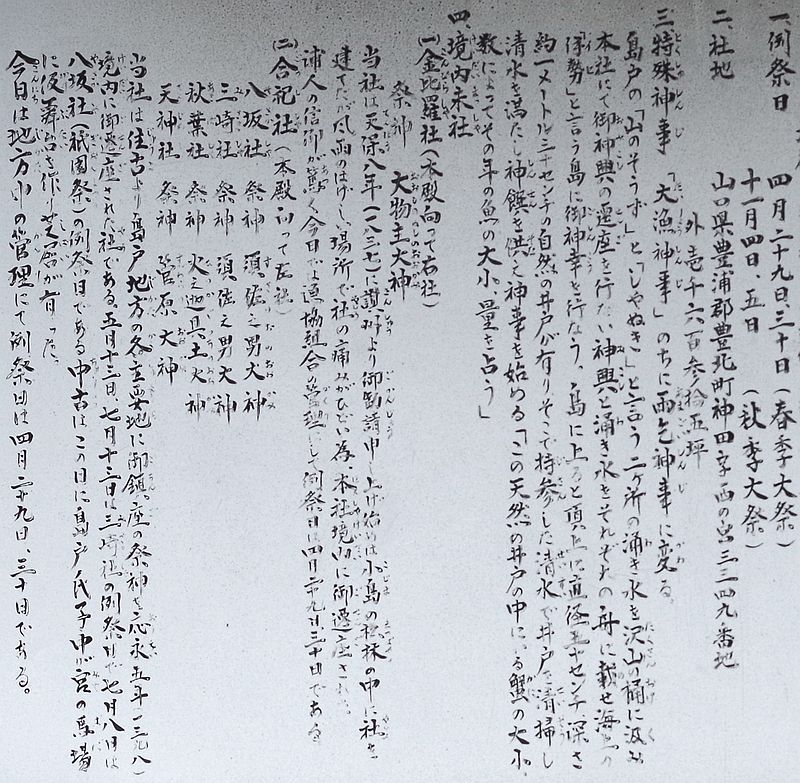 一、例祭日　四月二十九日、三十日　（春季大祭。）
十一月四日、五日　（秋季大祭。）
二、社地　山口県豊浦郡豊北町神田字西の 三二四九番地
外壱千六百参拾五坪
三、特殊神事　「大漁神事」のちに雨乞神事に変る。
島戸の「山のそうず」と「しやぬき」と言う二ヶ所の涌き水を沢山の桶に汲み
本社にて御神輿の遷座を行ない神輿と涌き水をそれぞれの舟に載せ海上の
「伊勢」と言う島に御神幸を行なう、島に上ると頂上に直径五十センチ深さ
約一メートル三十センチの自然の井戸が有りそこで持参した清水で井戸を清掃し
清水を満たし神饌を供え神事を始める「この天然の井戸の中にいる蟹の大小、
数によってその年の魚の大小、量を占う」
四、境内末社
(一)金比羅社（本殿向って右社）
祭神　大物主大神
当社は天保八年（一八三七）に讃州より御勧請申し上げ始めは小島の松林の中に社を
建てたが風雨のはげしい場所で社の痛みがひどい為、本社境内に御遷座された、
浦人の信仰が篤く今日では漁協組合の管理にして例祭日は四月二十九日、三十日である
(二)合祀社（本殿向って左社）
八坂社　祭神　須佐之男大神
三崎社　祭神　須佐之男大神
秋葉社　祭神　火之迦具土大神
天神社　祭神　菅原大神
当社は往古より島戸地方の各主要地に御鎮座の祭神を応永五年（一三九八）
境内に御遷座された社である。五月十三日、七月十三日は三崎社の例祭日で七月八日は
八坂社（祇園祭）の例祭日である中古はこの日に島戸氏子中が宮の馬場
に仮舞台を作り芝居が有った、
今日は地方中の管理にて例祭日は四月二十九日、三十日である。